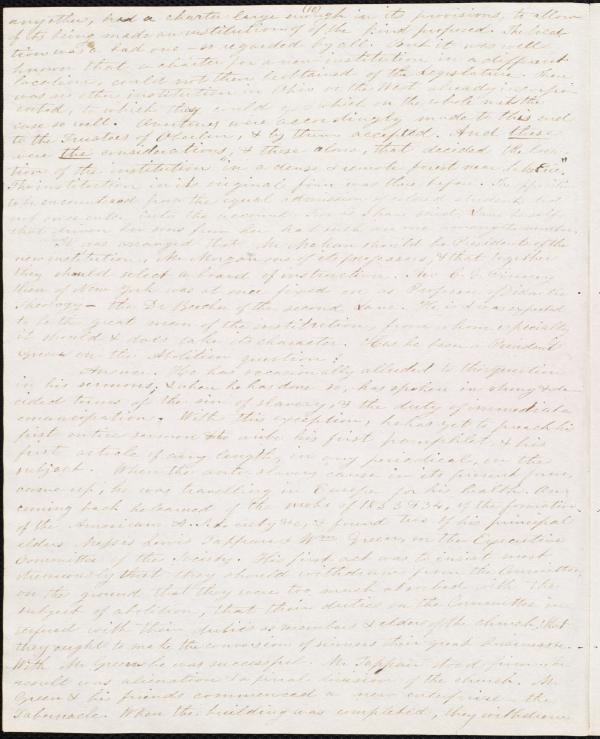 (10)
any other, had a charter large enough in its provisions, to allow
of its being made an institution of the kind proposed. The loca-
tion was a bad one - so regarded by all. But it was well
known that a charter for a new institution in a different
location, could not then be obtained of the Legislature. There
was no other institution in Ohio or the West already incorpo-
rated, to which they could go & which on the whole met the
case so well. Overtures were accordingly made to this end
to the Trustees of Oberlin, & by them accepted. And these
were the considerations, & these alone, that decided the loca-
tion of the institution "in a dense & remote forest near
The institution in its original form was thus begun. The opposition
to be encountered from the equal admission of colored students did
not once enter into the account. For as I have said, Lane itself
that driven her sons from her had such an one among the number.
It was arranged that Mr Mahan should be President of the
new institution, Mr Morgan one of its professors, & that together
they should select a board of instruction. Rev C. G. Finney
then of New York was at once fixed on as Professor of Didactic
Theology - the Dr Beecher of the second Lane. He is & was expected
to be the great man of the institution, from whom especially
it should & does take its character. Has he been a
on the Abolition question?
Answer. He has occasionally alluded to the question
in his sermons; & when he has done so, has spoken in strong & de-
cided terms of the sin of slavery, & the duty of immediate
emancipation. With this exception, he has yet to preach his
first entire sermon & to write his first pamphlet, & his
first article of any length, in any periodical, on the
subject. When the anti slavery cause in its present form,
came up, he was travelling in Europe for his health. On
coming back he learned of the mobs of 1833 & 34, of the formation
of the American A. S. Society &c, & found two of his principal
elders Messrs Lewis Tappan & Wm Green, on the Executive
Committee of the Society. His first act was to insist most
strenuously that they should withdraw from the Committee,
on the ground that they were too much absorbed with the
subject of abolition, that their duties on the Committee in-
terfered with their duties as members & elders of the church, & that
they ought to make the conversion of sinners their great business.
With Mr Green he was successful. Mr Tappan stood firm. The
result was alienation & a final division of the church. Mr
Green & his friends commenced a new enterprise - the
Tabernacle. When the building was completed, they withdrew